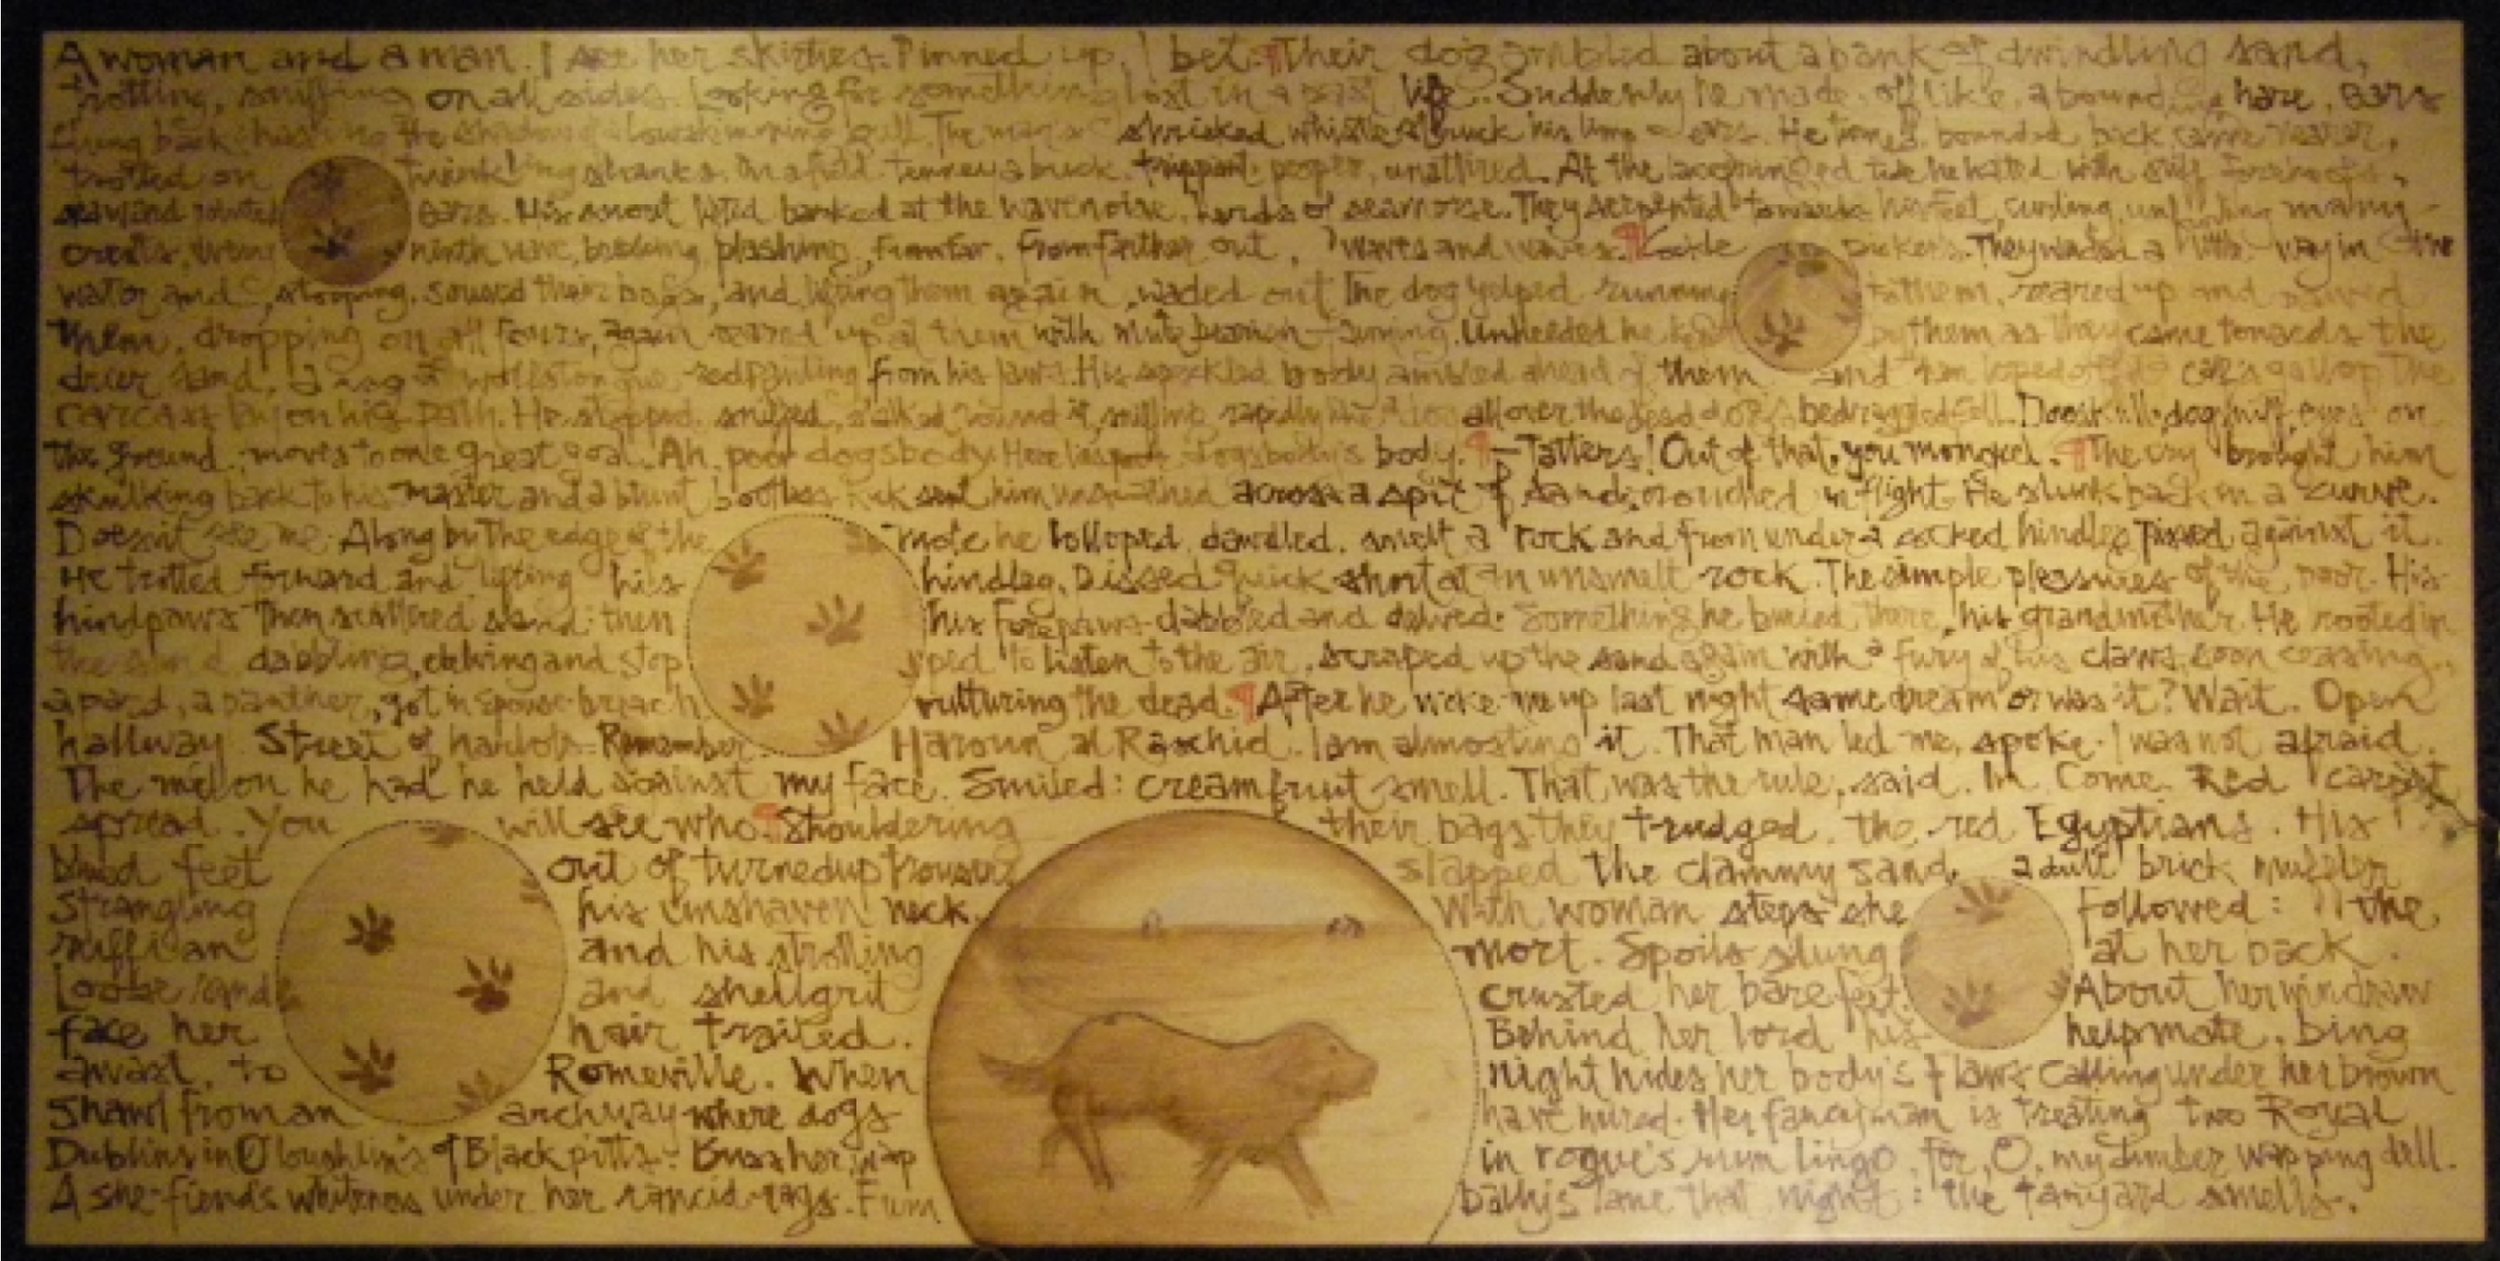 A woman and a man. I see her skirties. Pinned up, I bet. ¶Their dog ambled about a bank of dwindling sand,
trotting, sniffing on all sides. Looking for something lost in a past life. Suddenly he made off like a bounding hare, ears
flung back, chasing the shadow of a lowskimming gull. The man's shrieked whistle struck his limp ears. He turned, bounded back, came nearer,
trotted on twinkling shanks. On a field tenney a buck, trippant, proper, unattired. At the lacefringe of the tide he halted with stiff forehoofs,
seawardpointed ears. His snout lifted barked at the wavenoise, herds of seamorse. They serpented towards his feet, curling, unfurling many
crests, every ninth wave, breaking, plashing, from far, from farther out, waves and waves. ¶Cockle pickers. They waded a little way in the
water and, stooping, soused their bags, and lifting them again, waded out. The dog yelped running to them, reared up and pawed
them, dropping on all fours, again reared up at them with mute bearish fawning. Unheeded he kept by them as they came towards the
drier sand, a rag of wolf's tongue redpanting from his jaws. His speckled body ambled ahead of them and then loped off at a calf's gallop. The
carcass lay on his path. He stopped, sniffed, stalked round it, sniffling rapidly like a dog all over the dead dog's bedraggled fell. Dogskull, dogsniff, eyes on
the ground, moves to one great goal. Ah, poor dogsbody. Here lies poor dogsbody's body. ¶—Tatters! Out of that, you mongrel. ¶The cry brought him
skulking back to his master and a blunt bootless kick sent him unscathed across a spit of sand, crouched in flight. He slunk back in a curve.
Doesn't see me. Along by the edge of the mole he lolloped, dawdled, smelt a rock and from under a cocked hindleg pissed against it.
He trotted forward and, lifting his hindleg, pissed quick short at an unsmelt rock. The simple pleasures of the poor. His
hindpaws then scattered sand: then his forepaws dabbled and delved. Something he buried there, his grandmother. He rooted in
the sand, dabbling, delving and stopped to listen to the air, scraped up the sand again with a fury of his claws, soon ceasing,
a pard, a panther, got in spouse-breach, vulturing the dead. ¶After he woke me up last night same dream or was it? Wait. Open
hallway. Street of harlots. Remember. Haroun al Raschid. I am almosting it. That man led me, spoke. I was not afraid.
The melon he had he held against my face. Smiled: creamfruit smell. That was the rule, said. In. Come. Red carpet
spread. You will see who. ¶Shouldering their bags they trudged, the red Egyptians. His
blued feet out of turnedup trousers slapped the clammy sand, a dull brick muffler
strangling his unshaven neck. With woman steps she followed: the
ruffian and his strolling mort. Spoils slung at her back.
Loose sand and shellgrit crusted her bare feet. About her windraw
face her hair trailed. Behind her lord his helpmate, bing
awast, to Romeville. When night hides her body's flaws calling under her brown
shawl from an archway where dogs have mired. Her fancyman is treating two Royal
Dublins in O'loughlin's of Blackpitts. Buss her, wap in rogue's rum lingo, for, O, my dimber wapping dell.
A she-fiend's whiteness under her rancid rags. Fumbally's lane that night: the tanyard smells.